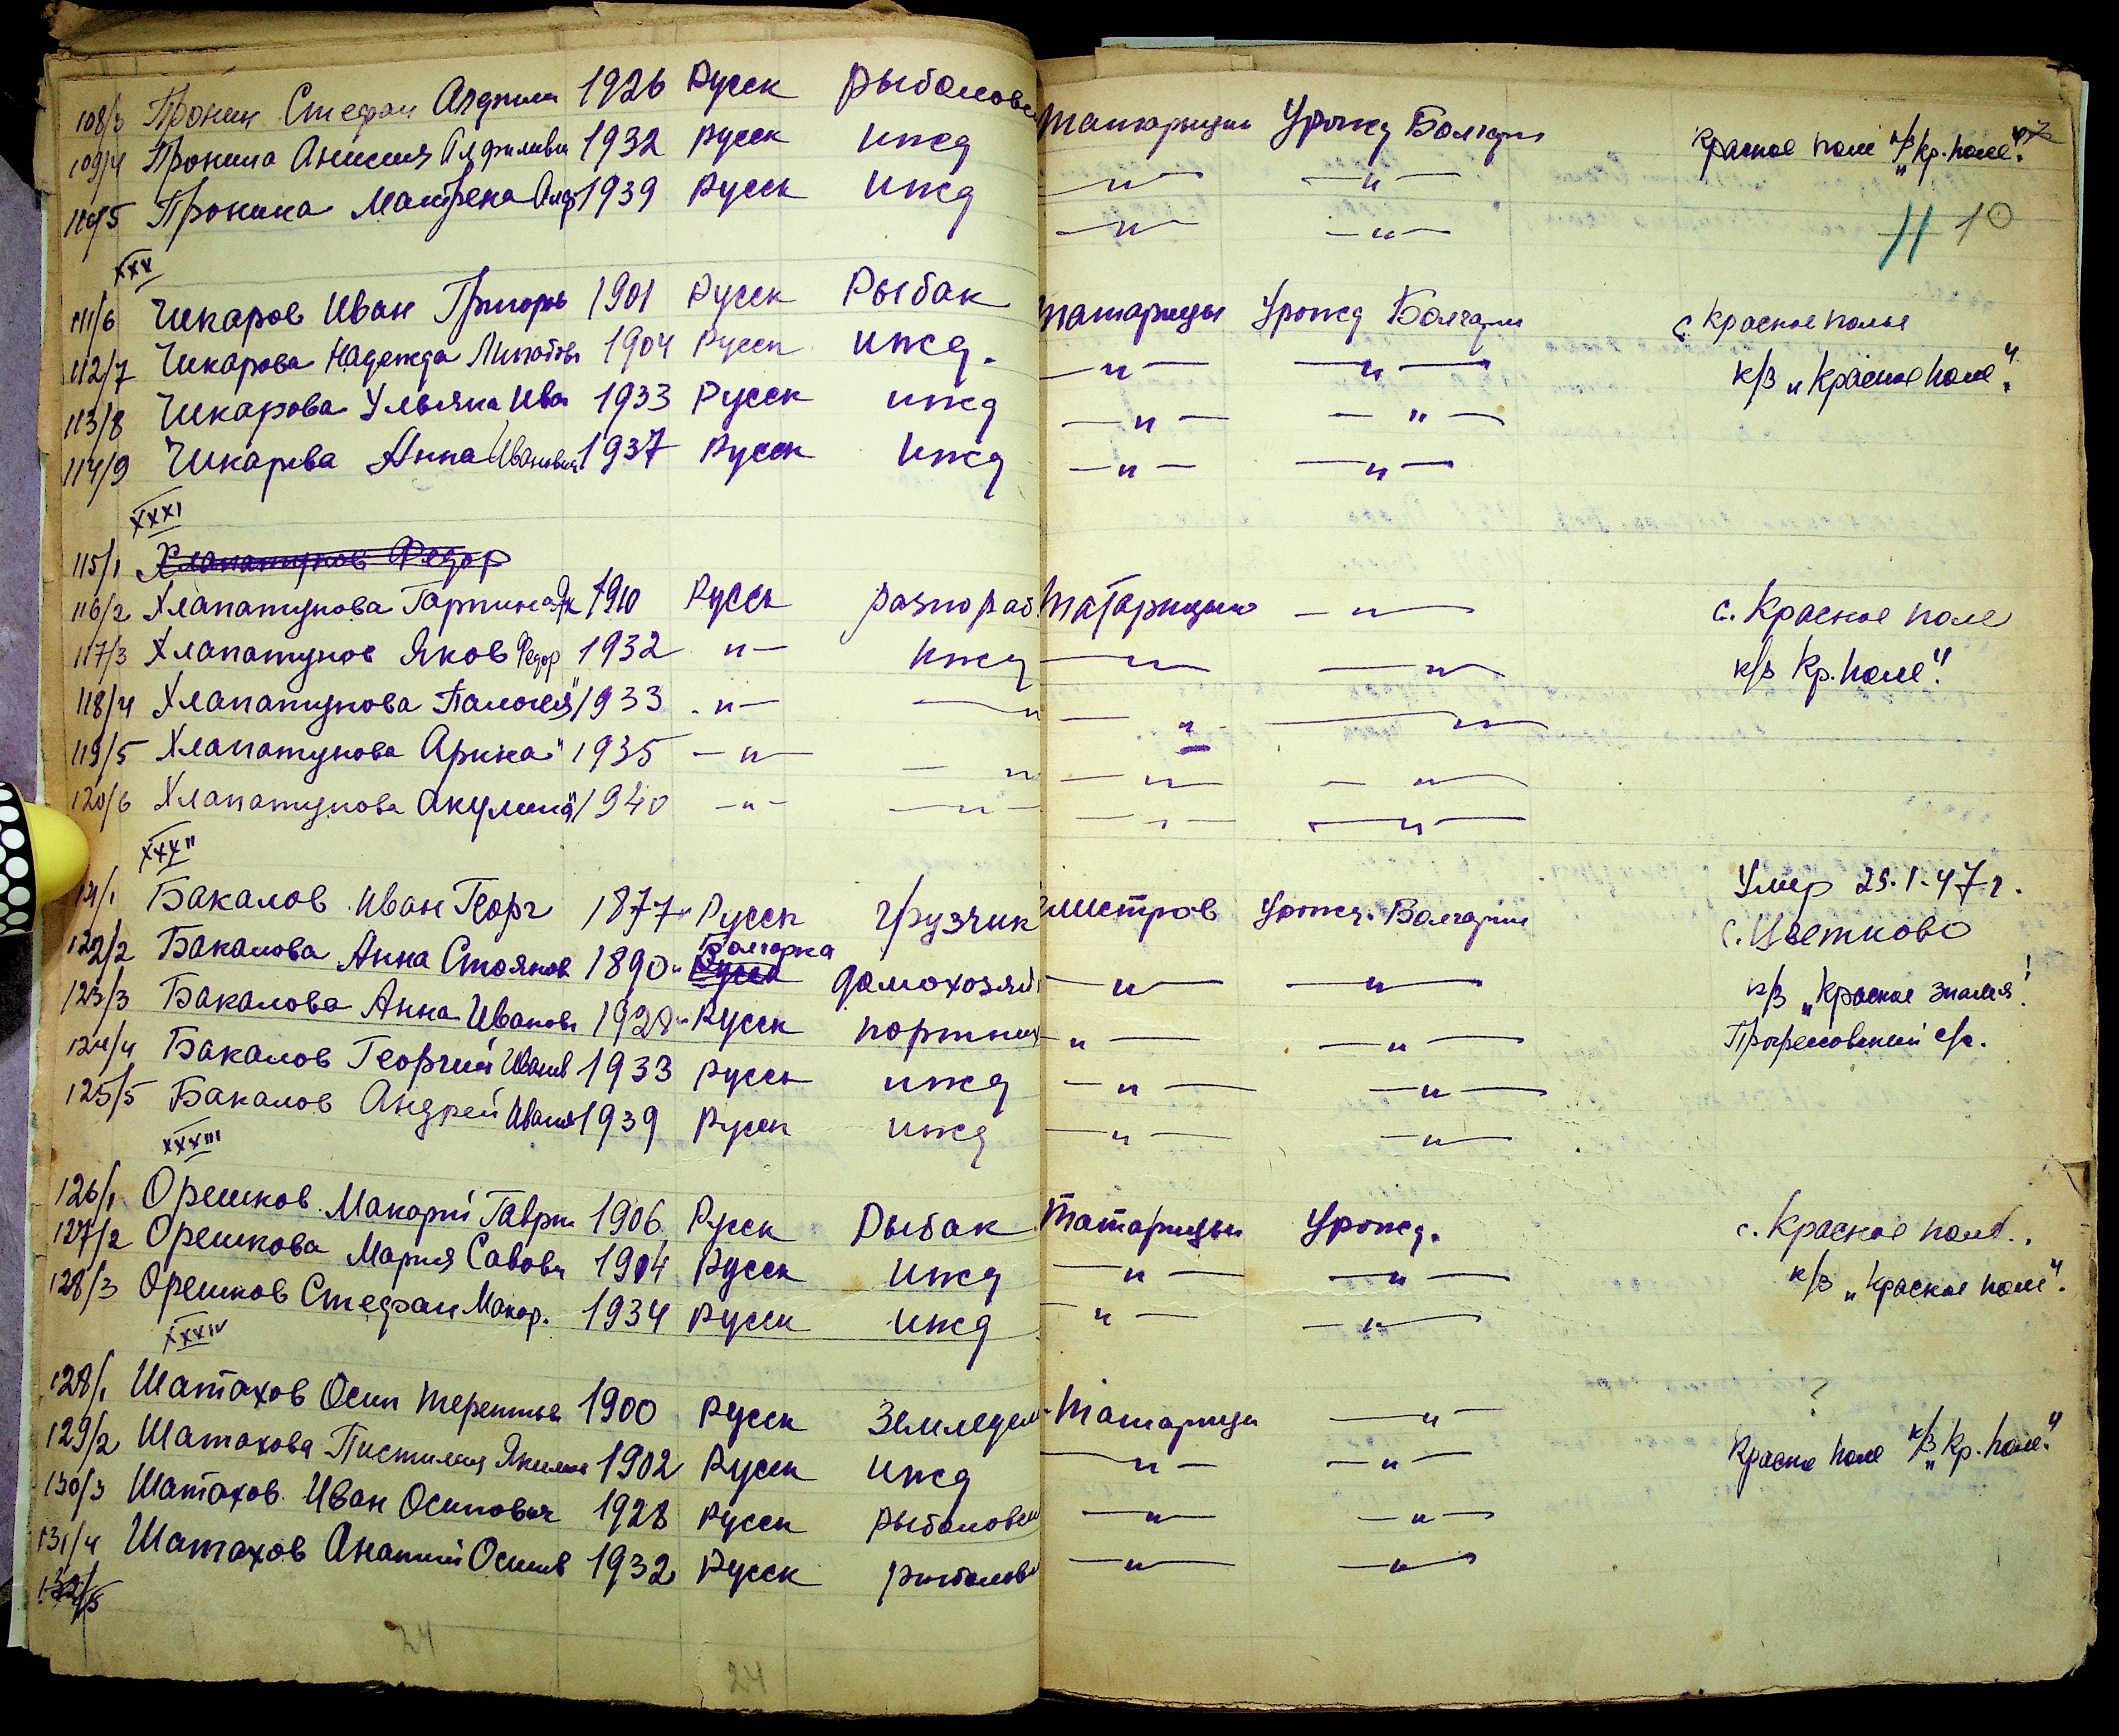 108/3 Пронин Стефан 1926 Русск рыболовс Татарицы Урожд Болгари Красное поле к/з "Кр. поле".
109/4 Пронина Анисия 1932 Русск ижд —"— —"—
110/5 Пронина Матрена 1939 Русск ижд —"— —"—
11 10
XXX
111/6 Чикаров Иван Григорь 1901 Русск Рыбак Татарицы Урожд Болгари с. Красное полье
112/7 Чикарова Надежда Липатовн 1904 Русск ижд. —"— —"— к/з "Красное поле".
113/8 Чикарова Ульяна Ива 1933 Русск ижд —"— —"—
114/9 Чикарова Анна Ивановна 1937 Русск ижд —"— —"—
XXXI
115/1 Хлапатунов Федор
116/2 Хлапатунова 1910 Русск разнораб Татарицы —"— с. Красное поле
117/3 Хлапатунов Яков Федор 1932 "— ижд —"— —"— к/з Кр. поле".
118/4 Хлапатунова " 1933 —"— —"— —"— —"—
119/5 Хлапатунова Арина " 1935 —"— —"— —"— —"—
120/6 Хлапатунова Акулина " 1940 —"— —"— —"— —"—
XXXII
121/1 Бакалов Иван Георг 1877 Русск грузчик Урожд. Болгарии Умер 25.1.47 г.
с. Цветково
122/2 Бакалова Анна Стоянов 1890 Русск Болгарка домохозяй —"— —"— к/з "Красное знамя"!
123/3 Бакалова Анна Ивановн 1928 Русск портних —"— —"— с/с.
124/4 Бакалов Георгий Иванов 1933 Русск ижд —"— —"—
125/5 Бакалов Андрей Иванов 1939 Русск ижд —"— —"—
XXXIII
126/1 Орешков Макарий Гаври 1906 Русск Рыбак Татарицы Урожд. с. Красное поле.
127/2 Орешкова Мария Савовн 1904 Русск ижд —"— —"— к/з "Красное поле".
128/3 Орешков Стефан Макар. 1934 Русск ижд —"— —"—
XXXIV
128/1 Шатахов Осип Терентьев 1900 Русск Земледел Татарицы —"— ?
129/2 Шатахова Пистимия 1902 Русск ижд —"— —"— Красно поле к/з "Кр. поле".
130/3 Шатахов Иван Осипович 1928 Русск рыболовс —"— —"—
131/4 Шатахов Анатий Осипов 1932 Русск рыболов —"— —"—
132/5
24
24